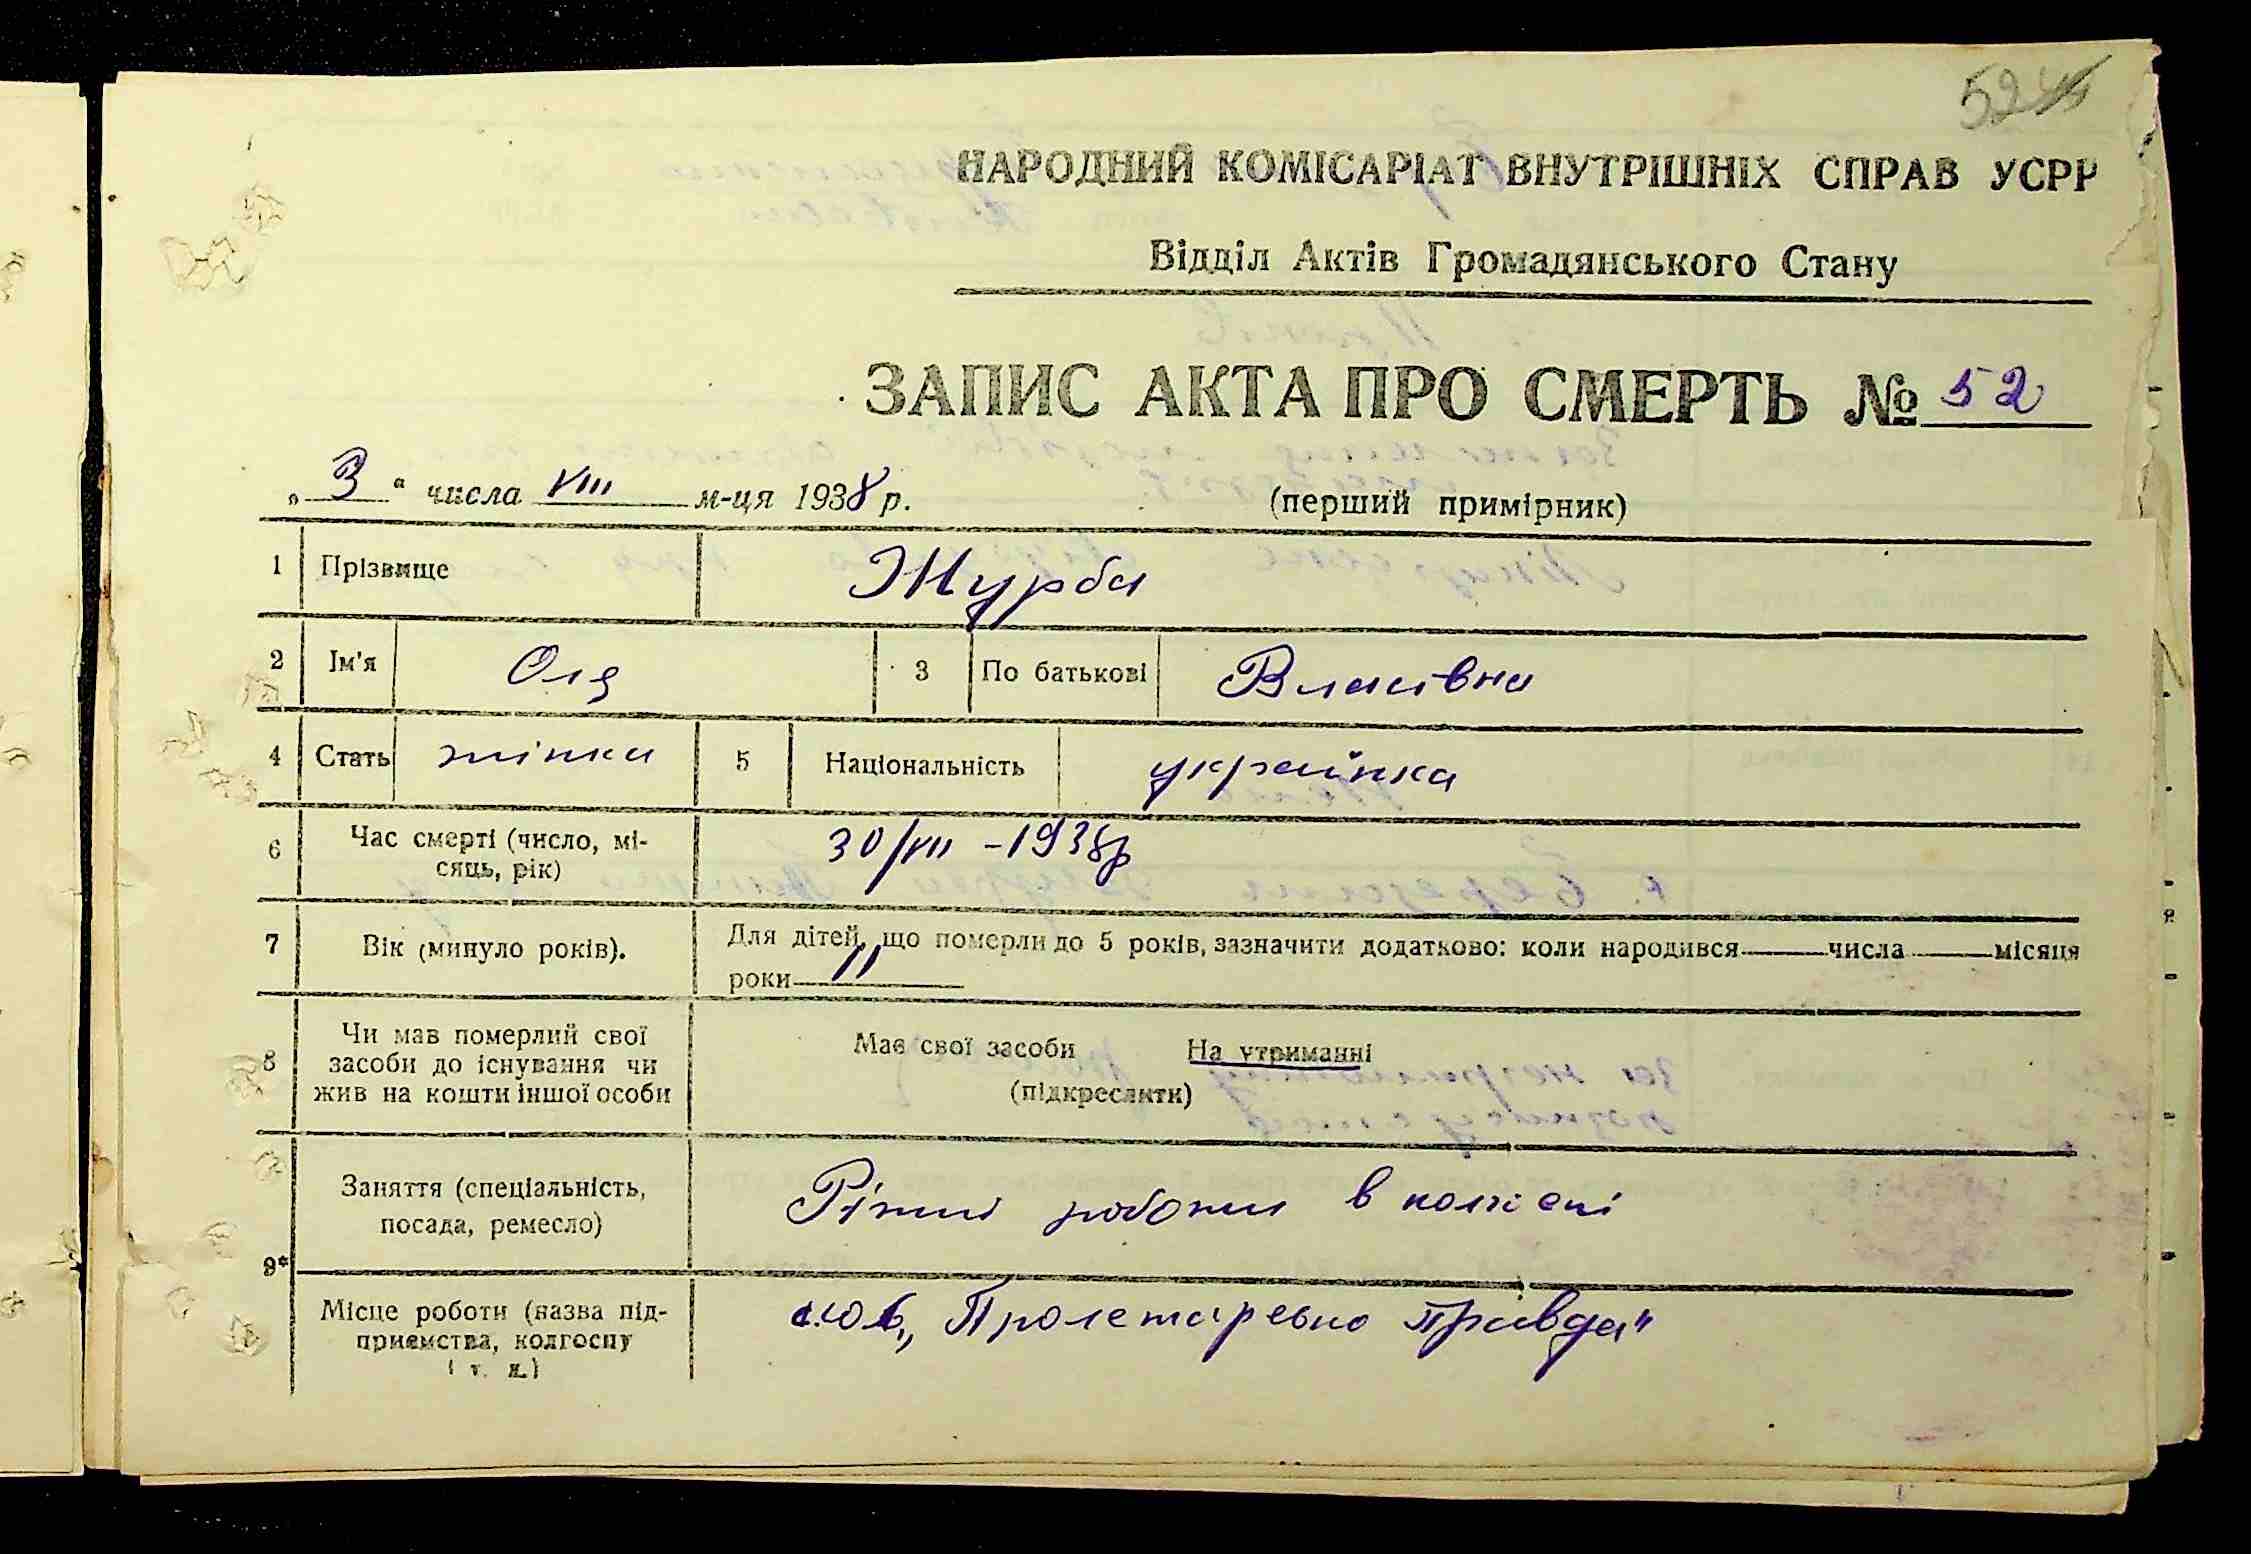 52
НАРОДНИЙ КОМІСАРІАТ ВНУТРІШНІХ СПРАВ УСРР
Відділ Актів Громадянського Стану
ЗАПИС АКТА ПРО СМЕРТЬ № 52
„ 3 “ числа VIII м-ця 1938 р. (перший примірник)
1 Прізвище Журба
2 Ім'я Оля 3 По батькові Власівна
4 Стать жінка 5 Національність українка
6 Час смерті (число, мі-
сяць, рік) 30/VII - 1938р
7 Вік (минуло років). Для дітей, що померли до 5 років, зазначити додатково: коли народився числа місяця
роки 11
8 Чи мав померлий свої
засоби до існування чи
жив на кошти іншої особи
Має свої засоби На утриманні
(підкреслити)
9* Заняття (спеціальність,
посада, ремесло) Різний робочий в колгоспі
Місце роботи (назва під-
приємства, колгоспу
і т. и.)
„Пролетарська правда"